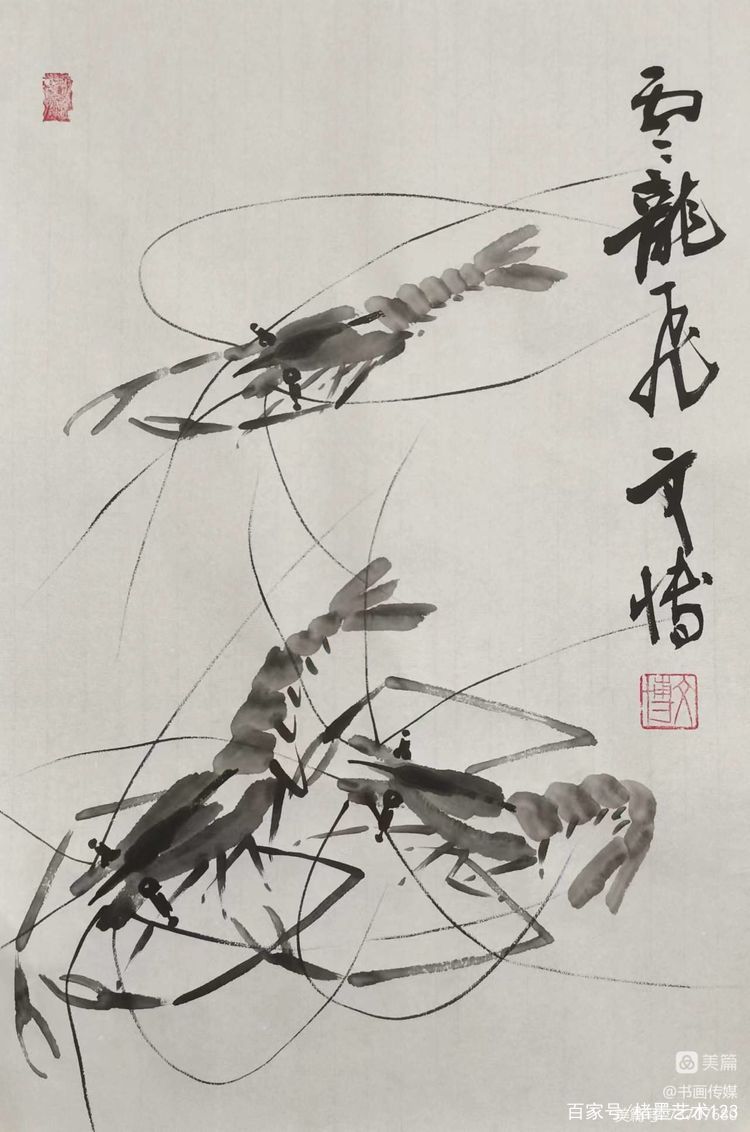 雲龍飛 文博
文博
美篇
@书画传媒
百家号/墨艺术123